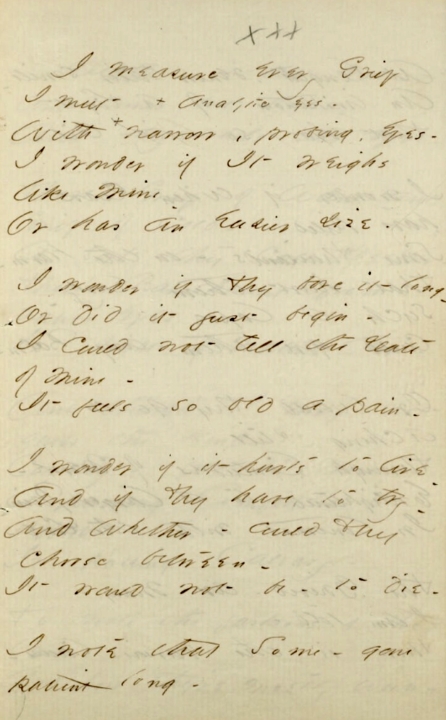 XXX
I measure every Grief
I meet + analytic eyes -
With + narrow, probing, eyes -
I wonder if It weighs
like mine
Or has an Easier size.
I wonder if They bore it long
Or did it just begin -
I could not tell the Date
of mine -
It feels so old a pain -
I wonder if it hurts to live -
And if They have to try -
And whether - could They
choose between -
It would not be - to die -
I note that Some - gone
patient long -